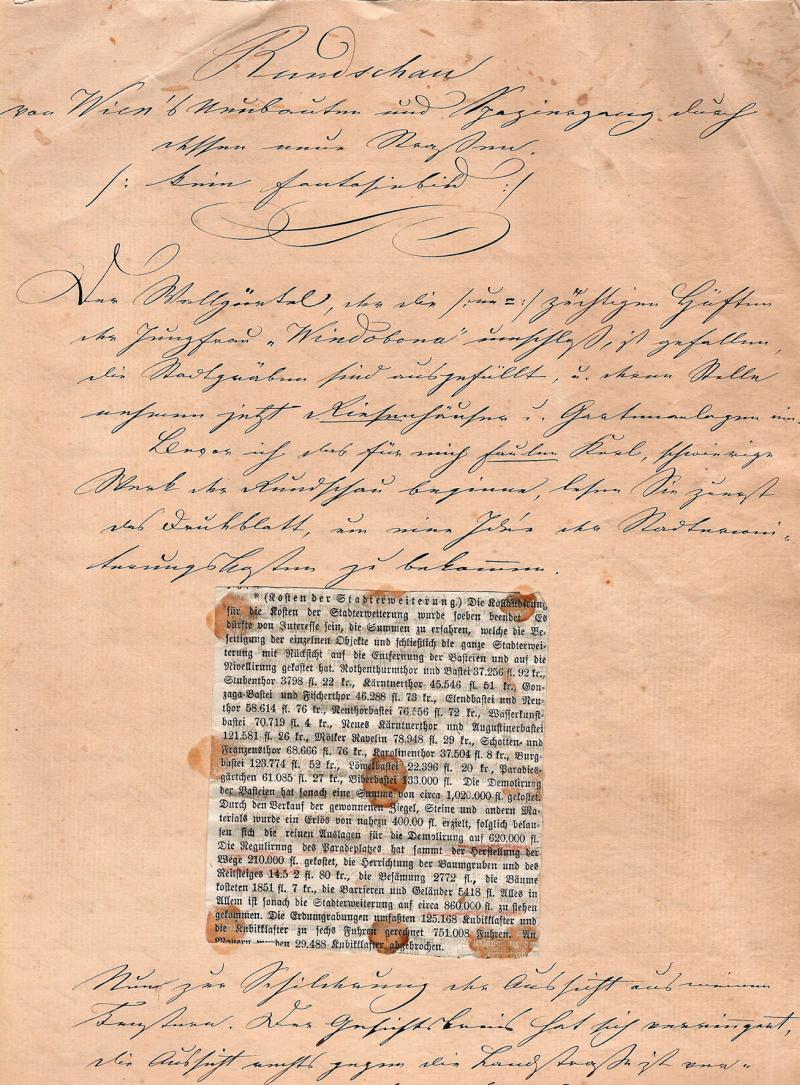 Rundschau
von Wien's Neubauten und Spaziergang durch
dessen neue Straßen.
/: kein Fantasiebild :/
Der Wallgürtel, der die /:un=:/ züchtigen Hüften
der Jungfrau „Windobona" umschloß, ist gefallen,
die Stadtgräben sind ausgefüllt, u. deren Stelle
nehmen jetzt Riesenhäuser u. Gartenanlagen ein.
Bevor ich das für mich faulen Kerl, schwierige
Werk der Rundschau beginne, lesen Sie zuerst
das Druckblatt, um eine Idée der Stadterwei-
terungskosten zu bekommen.
* (Kosten der Stadterweiterung.) Die
für die Kosten der Stadterweiterung wurde soeben beendet. Es
dürfte von Interesse sein, die Summen zu erfahren, welche die Be-
seitigung der einzelnen Objekte und schließlich die ganze Stadterwei-
terung mit Rücksicht auf die Entfernung der Basteien und auf die
Nivellirung gekostet hat. Rothenthurmthor und Bastei 37.256 fl. 92 kr.,
Stubenthor 3798 fl. 22 kr., Kärntnerthor 45.546 fl. 51 kr., Gon-
zaga-Bastei und Fischerthor 46.288 fl. 73 kr., Elendbastei und Neu-
thor 58.614 fl. 76 kr., Neuthorbastei 76.556 fl. 72 kr., Wasserkunst-
bastei 70.719 fl. 4 kr., Neues Kärntnerthor und Augustinerbastei
121.581 fl. 26 kr., Mölker Ravelin 78.948 fl. 29 kr., Schotten- und
Franzensthor 68.666 fl. 76 kr., Karolinenthor 37.504 fl. 8 kr., Burg-
bastei 123.774 fl. 52 kr., Löwelbastei 22.396 fl. 20 kr., Paradies-
gärtchen 61.085 fl. 27 kr., Biberbastei 133.000 fl. Die Demolirung
der Basteien hat sonach eine Summe von circa 1,020.000 fl. gekostet.
Durch den Verkauf der gewonnenen Ziegel, Steine und andern Ma-
terials wurde ein Erlös von nahezu 400.00 fl. erzielt, folglich belau-
fen sich die reinen Auslagen für die Demolirung auf 620.000 fl.
Die Regulirung des Paradeplatzes hat sammt der Herstellung der
Wege 210.000 fl. gekostet, die Herrichtung der Baumgruben und des
Reitsteiges 14.5 2 fl. 80 kr., die Besämung 2772 fl., die Bäume
kosteten 1851 fl. 7 kr., die Barrieren und Geländer 5418 fl. Alles in
Allem ist sonach die Stadterweiterung auf circa 860.000 fl. zu stehen
gekommen. Die Erdumgrabungen umfaßten 125.168 Kubikklafter und
die Kubikklafter zu sechs Fuhren gerechnet 751.008 Fuhren. An
Mauern wurden 29.488 Kubikklafter abgebrochen.
Nun zur Schilderung der Aussicht aus meinen
Fenstern. Der Gesichtskreis hat sich verringert,
die Aussicht rechts gegen die Landstraße ist ver-